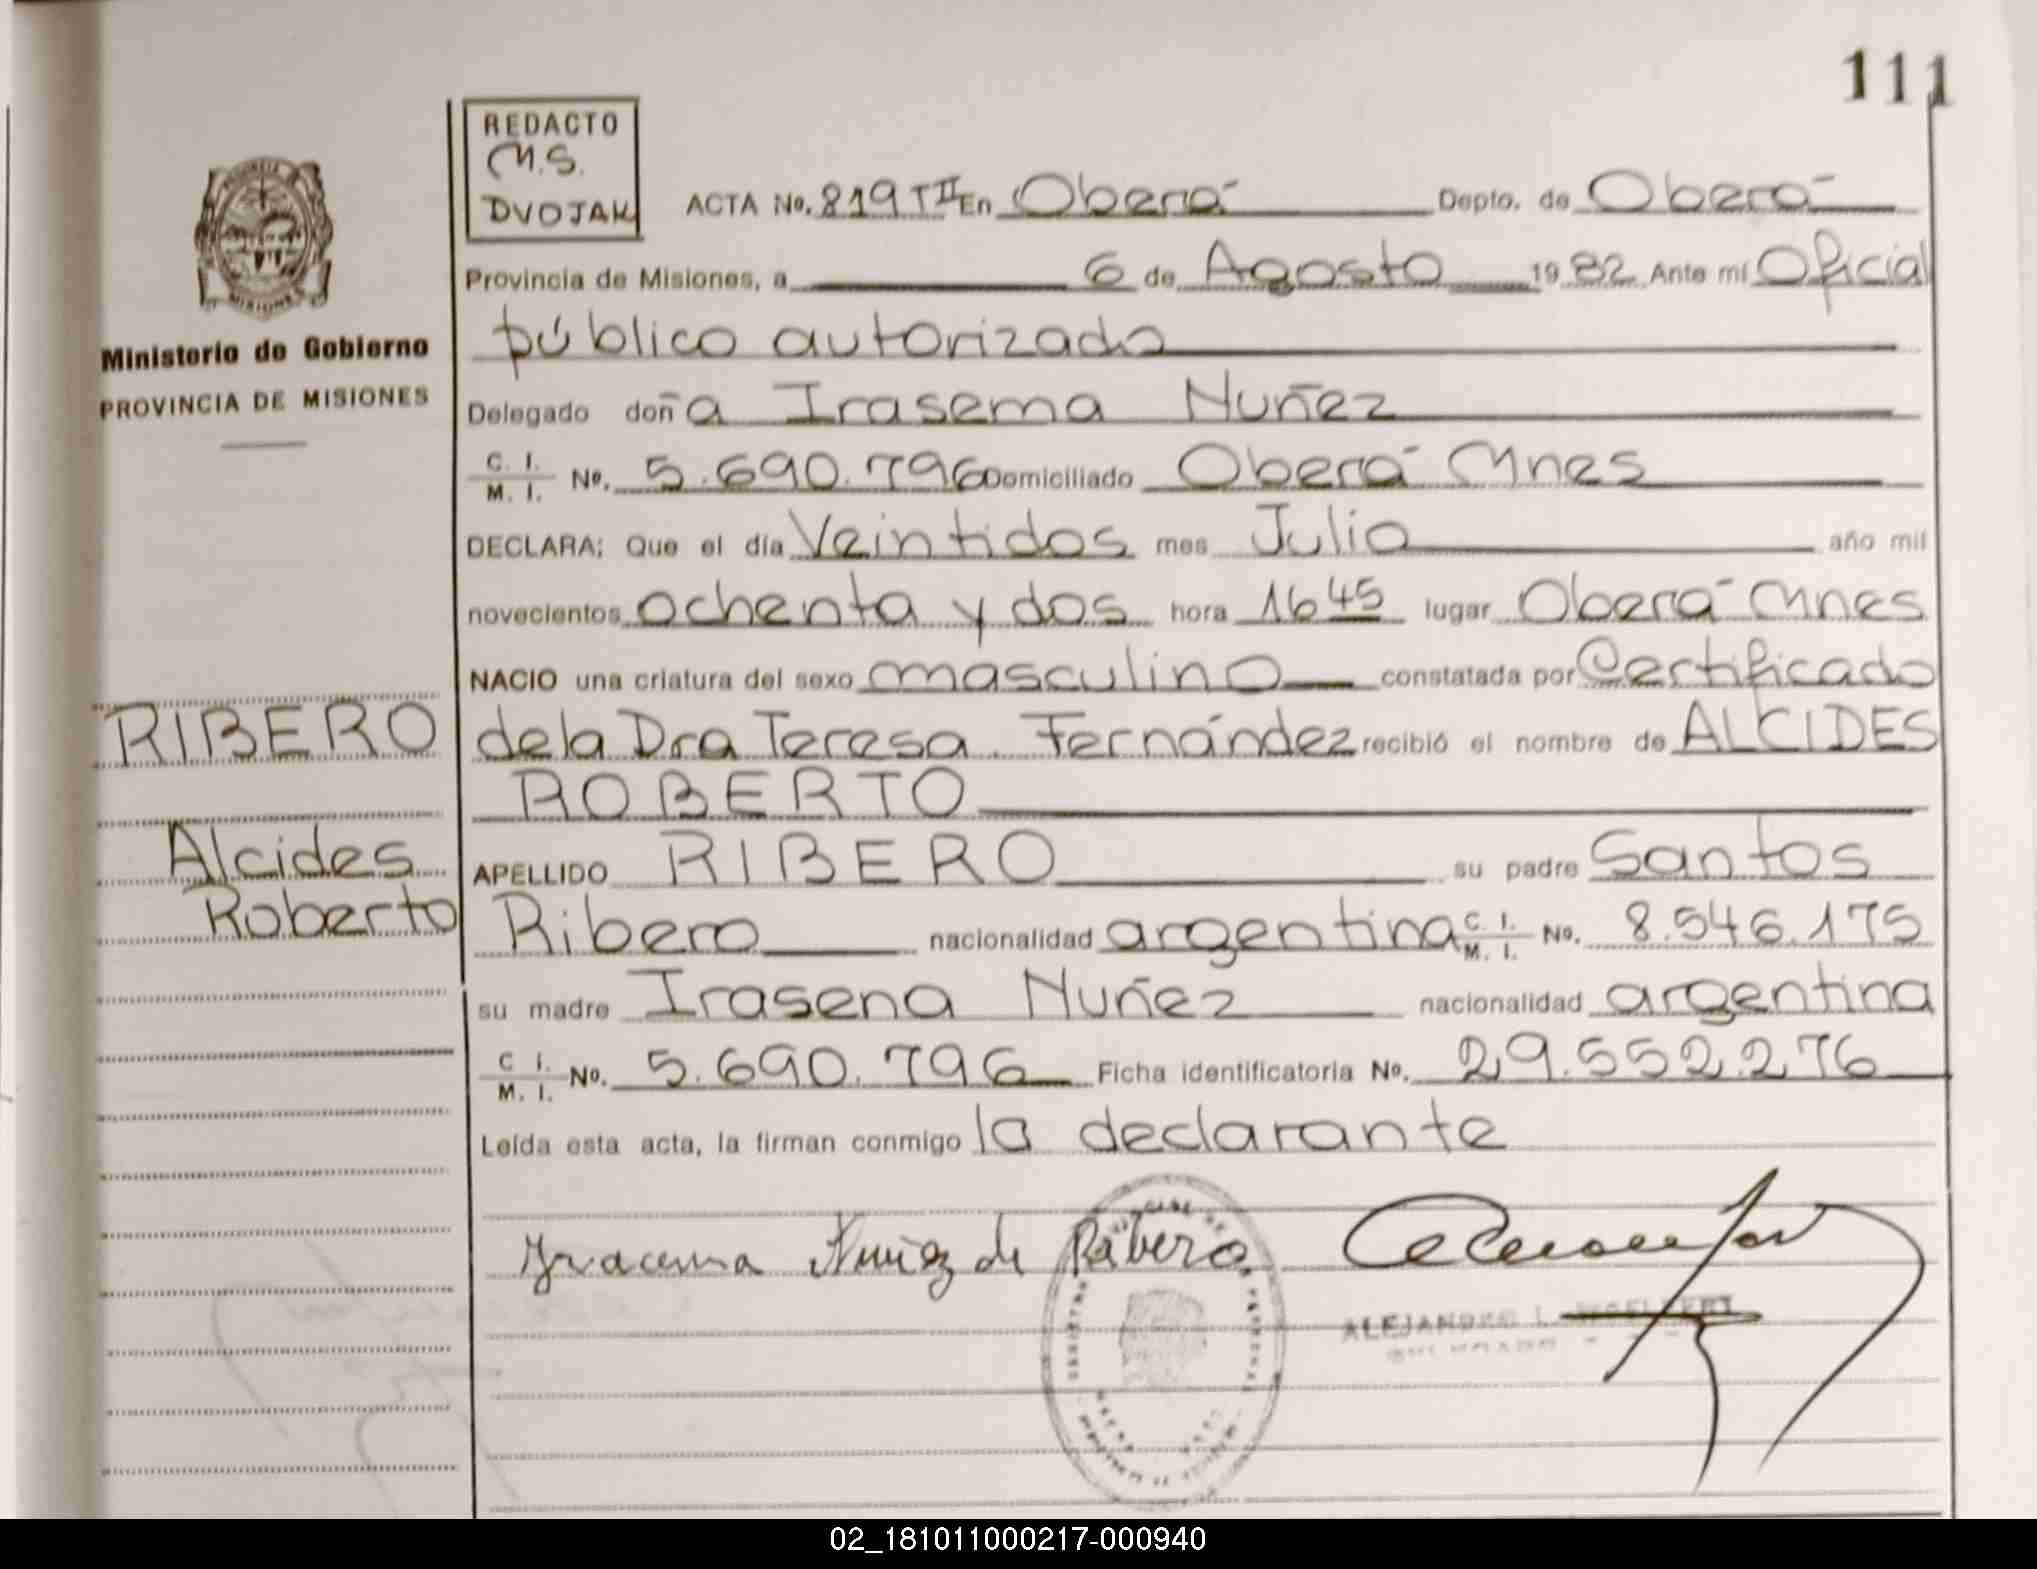 111
REDACTO
M.S.
DVOJAK
ACTA No. 819 TII En Oberá Depto. de Oberá
Provincia de Misiones, a 6 de Agosto 1982 Ante mí Oficial
público autorizado
Ministerio de Gobierno
PROVINCIA DE MISIONES
Delegado doña Irasema Nuñez
C. I.
M. I. No. 5.690.796 Domiciliado Oberá Mnes
DECLARA: Que el día Veintidos mes Julio año mil
novecientos ochenta y dos hora 16 45 lugar Oberá Mnes
NACIO una criatura del sexo masculino constatada por Certificado
dela Dra Teresa Fernández recibió el nombre de ALCIDES
ROBERTO
RIBERO
Alcides
Roberto
APELLIDO RIBERO su padre Santos
Ribero nacionalidad argentina C. I. M. I. No. 8.546.175
su madre Irasena Nuñez nacionalidad argentina
C I.
M. I. No. 5.690.796 Ficha identificatoria No. 29.552.276
Leída esta acta, la firman conmigo la declarante
Yracema Nuñez de Ribero
ALEJANDRO L.
MISIONES
02_181011000217-000940